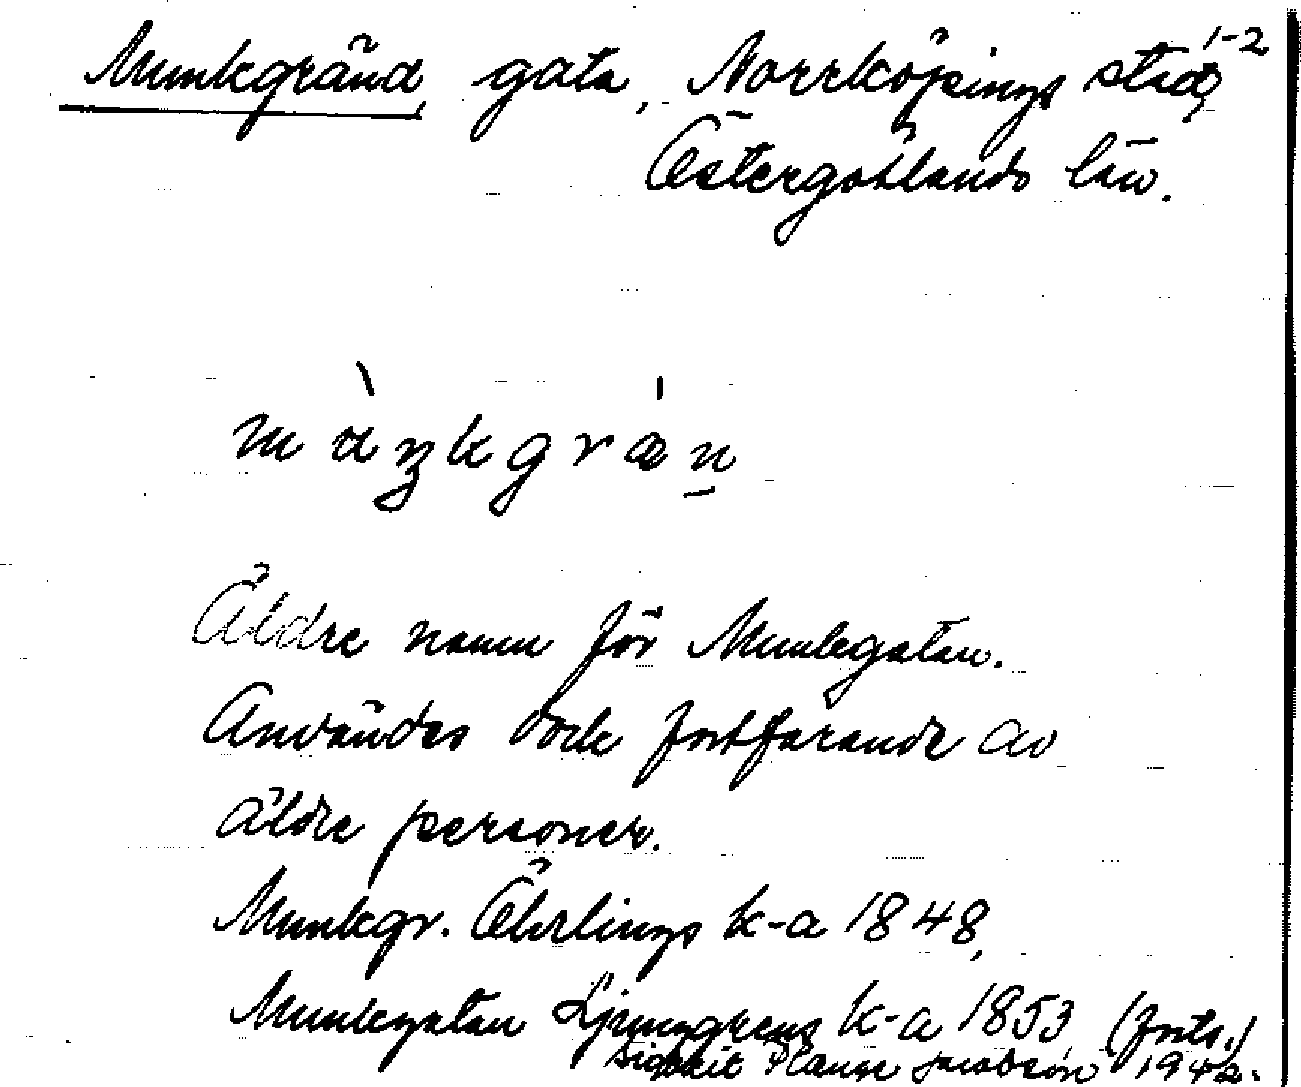 Munkgränd, gata, Norrköpings stad, 1-2
Östergötlands län.
Äldre namn för Munkgatan.
Användes dock fortfarande av
äldre personer.
Munkgr. Öhrlings k-a 1848,
Munkgatan Ljunggrens k-a 1853 (forts.)
Planze Jacobson 1942.